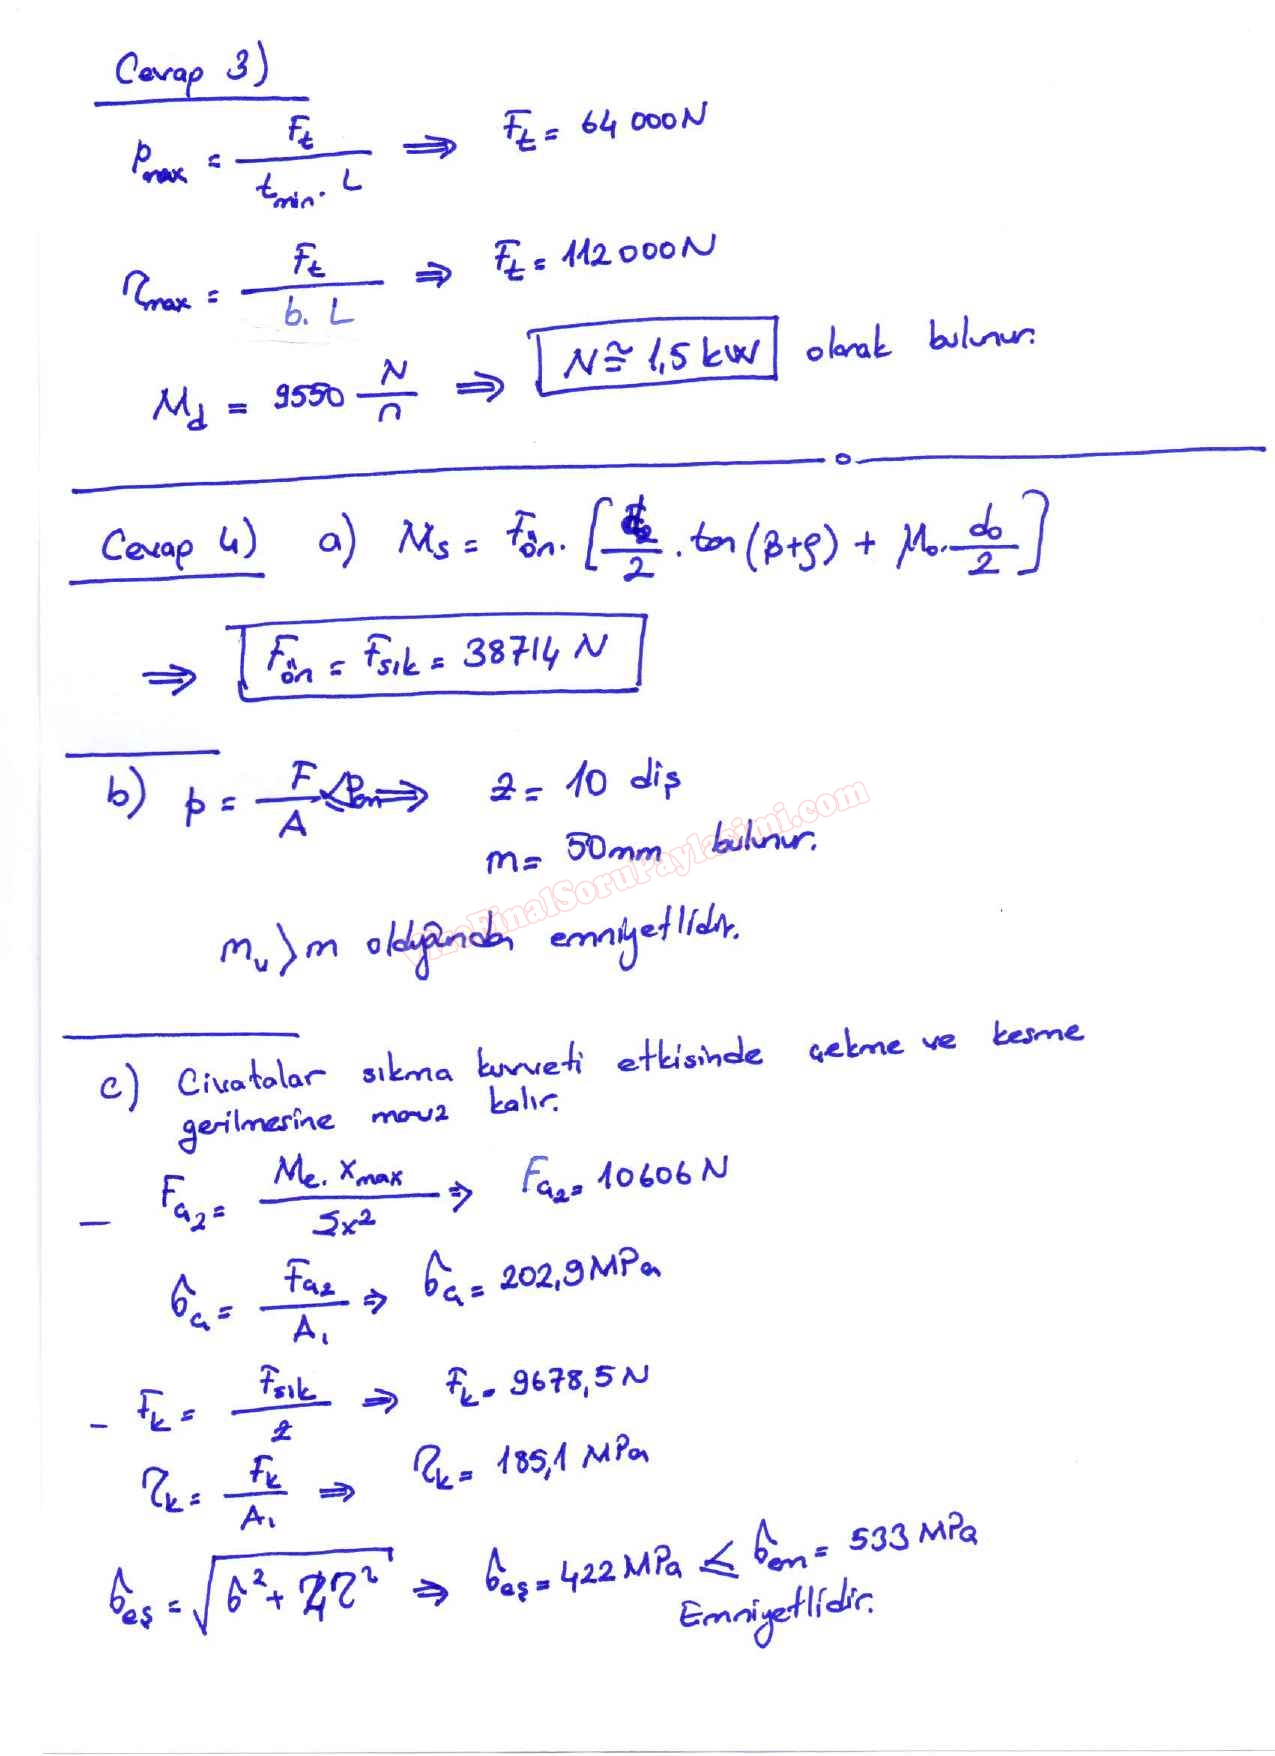 Cevap 3)
Pmax = Ft / (tmin . L) ⇒ Ft = 64 000 N
τmax = Ft / (b. L) ⇒ Ft = 112 000 N
Md = 9550 N/n ⇒ N ≅ 1,5 kW olarak bulunur.
Cevap 4) a) Ms = Fön. [d2/2 . tan (β+ρ) + μo. do/2]
⇒ Fön = Fsık = 38714 N
b) p = F/A ≤ Pem ⇒ z = 10 diş
m = 50mm bulunur.
mv > m olduğundan emniyetlidir.
c) Civatalar sıkma kuvveti etkisinde çekme ve kesme
gerilmesine maruz kalır.
– Fa2 = Me. xmax / Σx² ⇒ Fa2 = 10606 N
σa = Fa2 / A1 ⇒ σa = 202,9 MPa
– Fk = Fsık / z ⇒ Fk = 9678,5 N
τk = Fk / A1 ⇒ τk = 185,1 MPa
σeş = √(σ² + 4τ²) ⇒ σeş = 422 MPa ≤ σem = 533 MPa
Emniyetlidir.
VizeFinalSoruPaylasimi.com